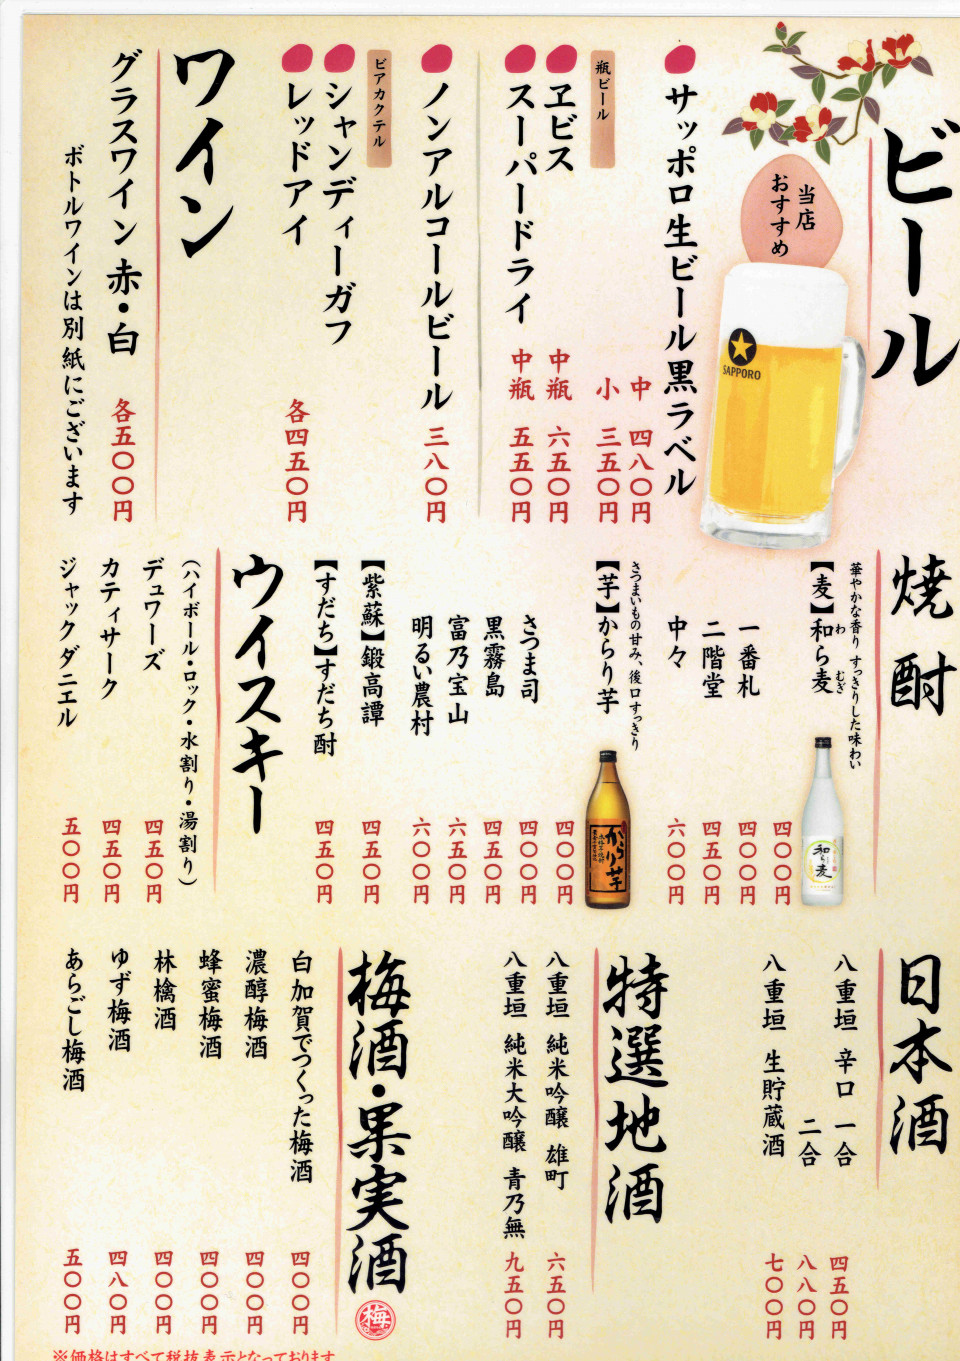 ビール
当店
おすすめ
SAPPORO
サッポロ生ビール黒ラベル
中 四八〇円
小 三五〇円
瓶ビール
ヱビス 中瓶 六五〇円
スーパードライ 中瓶 五五〇円
ノンアルコールビール 三八〇円
ビアカクテル
シャンディーガフ
レッドアイ 各四五〇円
ワイン
グラスワイン 赤・白 各五〇〇円
ボトルワインは別紙にございます
焼酎
華やかな香り すっきりした味わい
【麦】和ら麦 四〇〇円
わ むぎ
和ら麦
一番札 四〇〇円
二階堂 四五〇円
中々 六〇〇円
さつまいもの甘み、後口すっきり
【芋】からり芋 四〇〇円
からり芋
さつま司 四〇〇円
黒霧島 四五〇円
富乃宝山 六五〇円
明るい農村 六〇〇円
【紫蘇】鍛高譚 四五〇円
【すだち】すだち酎 四五〇円
ウイスキー
（ハイボール・ロック・水割り・湯割り）
デュワーズ 四五〇円
カティサーク 四五〇円
ジャックダニエル 五〇〇円
日本酒
八重垣 辛口 一合 四五〇円
二合 八八〇円
八重垣 生貯蔵酒 七〇〇円
特選地酒
八重垣 純米吟醸 雄町 六五〇円
八重垣 純米大吟醸 青乃無 九五〇円
梅酒・果実酒
梅
白加賀でつくった梅酒 四〇〇円
濃醇梅酒 四〇〇円
蜂蜜梅酒 四〇〇円
林檎酒 四〇〇円
ゆず梅酒 四八〇円
あらごし梅酒 五〇〇円
※価格はすべて税抜表示となっております